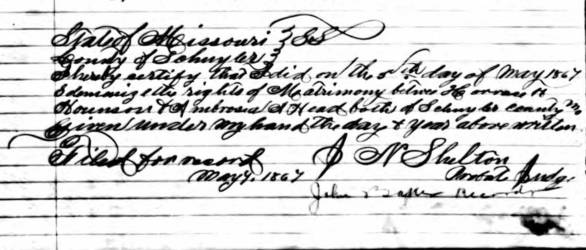 State of Missouri } SS
County of Schuyler }
I hereby certify that I did on the 5th day of May 1867
Solemnize the rights of Matrimony between
& Ambrosia A Head both of Schuyler County Mo
Given under my hand the day & year above written
Filed for record J N Shelton
May 9, 1867 Probate Judge
John Recorder